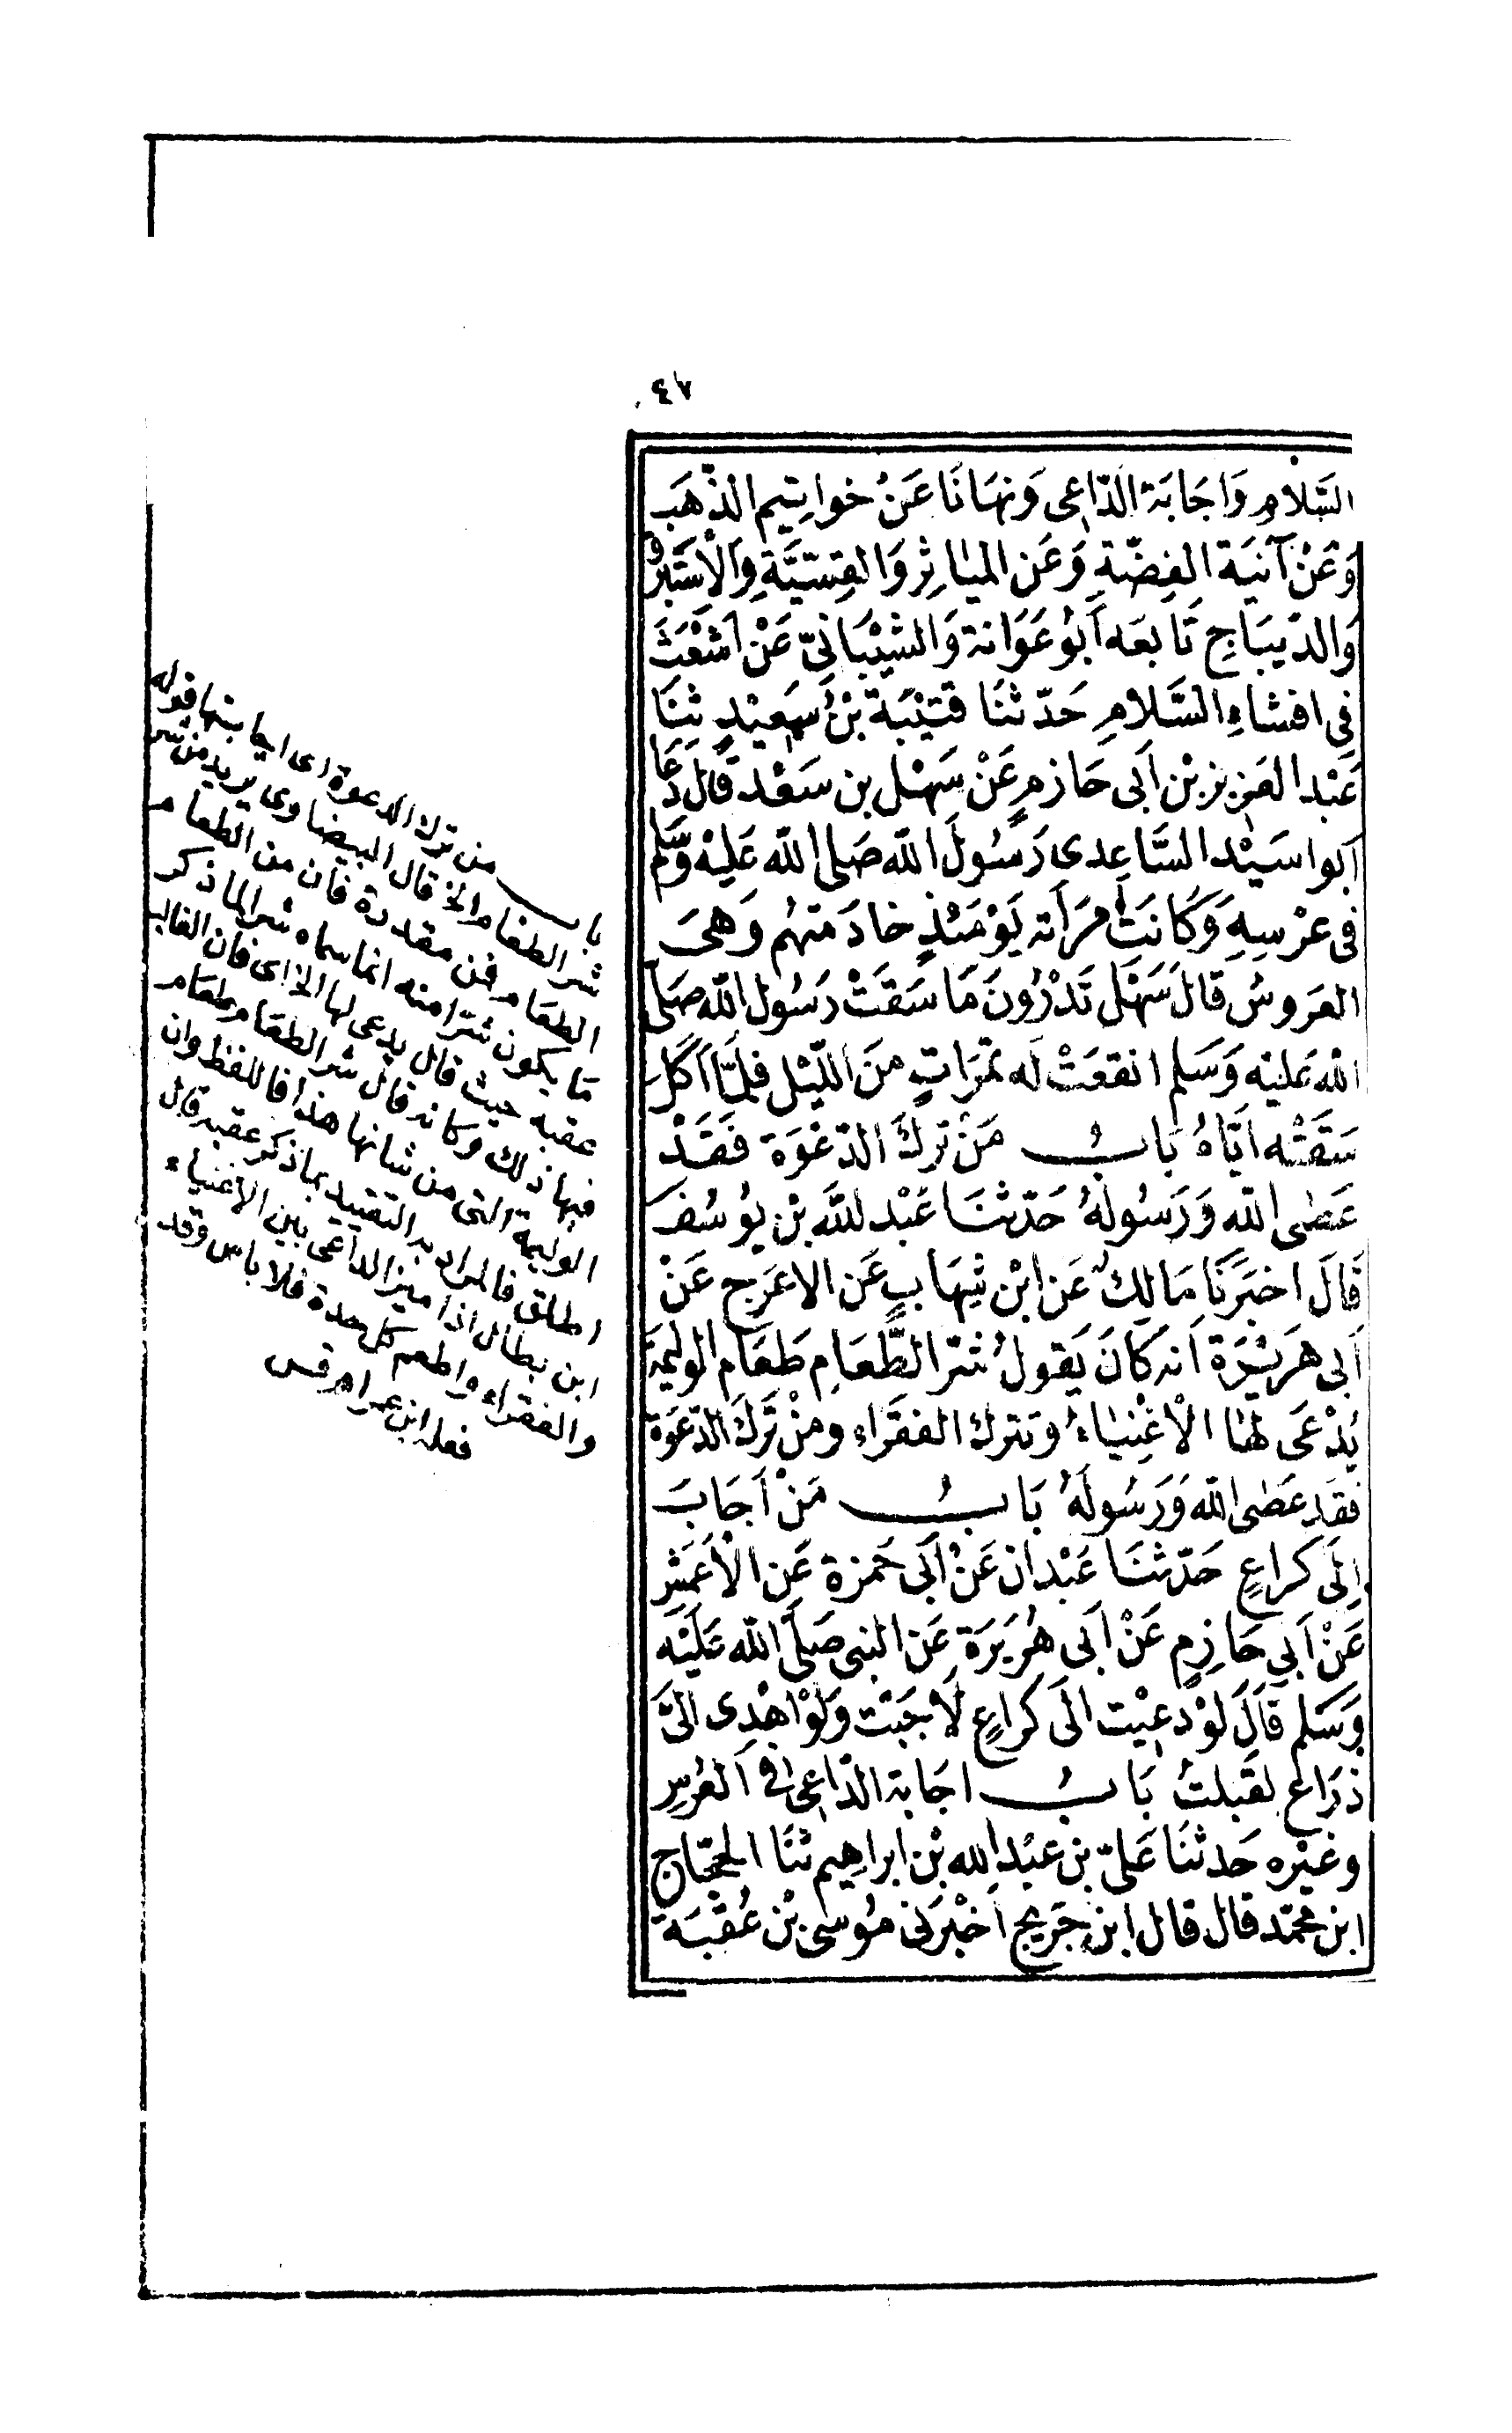 ٤٧
السَّلَامِ وَاجَابَةِ الدَّاعِى وَنَهَانَا عَنْ خَواتِيم الذّهَب
وَعَنْ آنيَة الفِضّةِ وَعَن المَيٰاثِرِ وَالقِسّيَّةِ وَالْاسْتَبْرقِ
وَالدّيبَاجِ تَابعَه اَبُو عَوَانة وَالشيْبَانِىّ عَنْ اشْعَثَ
فِى افشاءِ السَّلامِ حَدّثنَا قتيْبَة بْنُ سَعِيْدٍ ثنَا
عَبْد العَزيز بْن اَبى حَازمٍ عَنْ سَهْل بن سَعْد قالَ دَعَا
اَبوا سَيْد السَّاعِدى رَسُولَ الله صَلى الله عَليْه وَسَّلم
فى عرْسِهِ وَكَانَتْ امَرَأته يَوْمَئذٍ خادَمَهُم وَهىَ
العَروسُ قالَ سَهْل تَدْرُونَ مَا سَقَتْ رَسُول الله صَلى
الله عَليْه وَسَلم انقعَتْ لَه تَمَرَاتٍ مِنَ اللّيْل فلَمَّا اَكَل
سَقَتْه ايَّاهُ بَابُ مَنْ تَركَ الدّعْوَة فَقَدْ
عَصٰى الله وَرَسُولهُ حَدّثنَا عَبْد اللهَ بْن يوُسُفَ
قَالَ اخبَرَنَا مَالِكٌ عَن ابْن شِهَابٍ عَن الاعَرَج عَنْ
اَبى هرَيْرَة اَنه كَانَ يَقولُ شرّ الطَّعَامِ طَعَام الوليمَة
يُدْعَى لهَا الْاغْنيٰاءُ وتترك الفقَرَاء ومنْ تَركَ الدّعوَة
فقَد عَصٰى الله وَرَسُولَهُ بَابُ مَنْ اَجَابَ
اِلَى كرَاعٍ حَدّثنَا عَبْدان عَنْ اَبى حَمزة عَن الْاَعمَشِ
عَنْ اَبِى حَازِمٍ عَنْ اَبى هُرَيَرَة عَن النبى صَلّى الله عَلَيْه
وَسَلم قَالَ لوْ دعِيْت الَى كرَاعٍ لَاجَبْت وَلَوْ اهْدِى الىَّ
ذرَاعٌ لقَبلتُ بَابُ اجَابة الدّاعِى فى العُرْسِ
وغيْره حَدثنَا عَلىّ بن عبْد الله بْن ابراهِيم ثنَا الحجّاج
ابن محمّد قال قال ابن جَريج اَخْبَرَنى مُوسٰى بْن عُقْبَة
باب من ترك الدعوة اى اجابتها قوله
شر الطعام الخ قال البيضاوى يريد من شر
الطعام فمن مقدرة فان من الطعام
ما يكون شرا منه انما سماه شرا لما ذكر
عقبه حيث قال يدعى لها الخ اى فان الغالب
فيها ذلك وكانه قال شر الطعام طعام
الوليمة التى من شانها هذا فاللفظ وان
اطلق فالمراد به التقييد بما ذكر عقبه قال
ابن بطال اذا ميز الداعى بين الاغنياء
والفقراء واطعم كل حدة فلا باس وقد
فعله ابن عمر اه قس